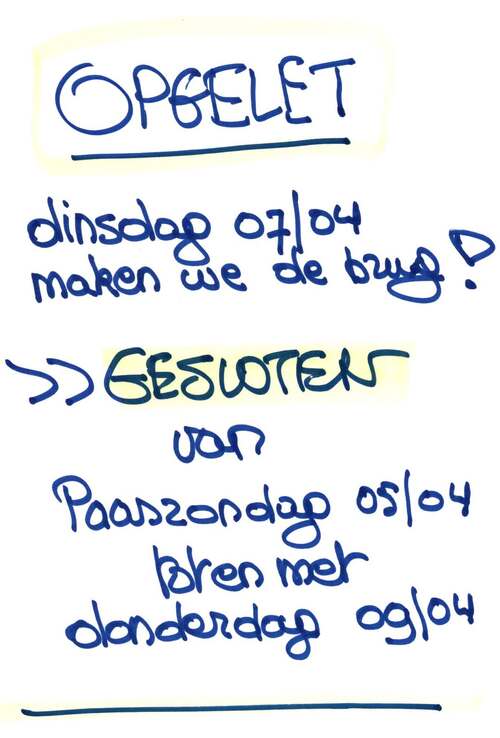 OPGELET
dinsdag 07/04
maken we de brug!
>> GESLOTEN
van
Paaszondag 05/04
tot en met
donderdag 09/04